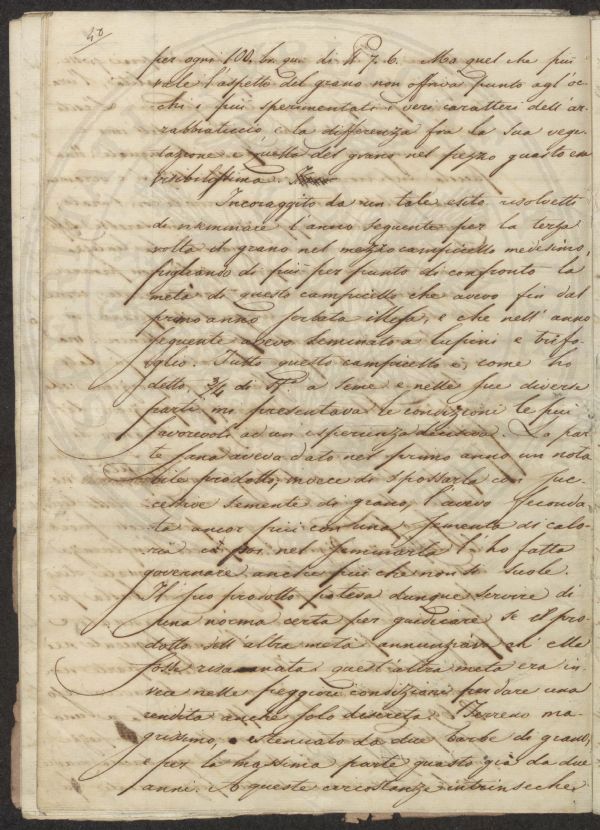 48
per ogni 100. br. qu. di 7. 6. Ma quel che più
vale l'aspetto del grano non offriva punto agl'oc-
chi i più sperimentati i veri caratteri dell'ar-
rabbiaticcio e la differenza fra la sua vege-
tazione e quella del grano nel pezzo guasto era
visibilissima.
Incoraggito da un tale esito risolvetti
di riseminare l'anno seguente per la terza
volta il grano nel mezzo campicello medesimo,
pigliando di più per punto di confronto la
metà di questo campicello che avevo fin dal
primo anno serbata illesa, e che nell'anno
seguente avevo seminato a lupini e trifo-
glio. Tutto questo campicello è, come ho
detto, 3/4 di a seme e nelle sue diverse
parti mi presentava le condizioni le più
favorevoli ad un'esperienza decisiva. La par-
te sana aveva dato nel primo anno un nota
bile prodotto; invece di spossarla con suc-
cessive semente di grano, l'avevo feconda-
ta ancor più con una sementa di calo-
ria e poi nel seminarla l'ho fatta
governare anche più che non si suole.
Il suo prodotto poteva dunque servire di
una norma certa per giudicare se il pro-
dotto dell'altra metà annunziava ch'ella
fosse risanata: quest'altra metà era in-
vece nelle peggiori condizioni per dare una
rendita anche solo discreta. Terreno ma-
grissimo, estenuato da due barbe di grano,
e per la massima parte guasto già da due
anni. A queste circostanze intrinseche